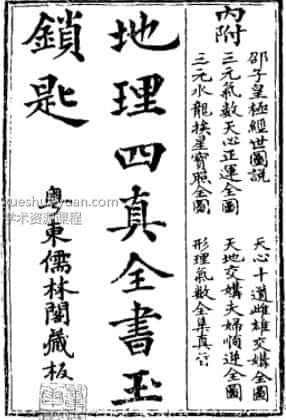 內附
邵子皇極經世圖説
三元氣數天心正運全圖
三元水龍挨星寶照全圖
天心十道雌雄交媾全圖
天地交媾夫婦順逆全圖
形理氣數全集真
地理四真全書玉
鎖匙
粵東儒林閣藏板
yueshuyuan.com
学术资源课程